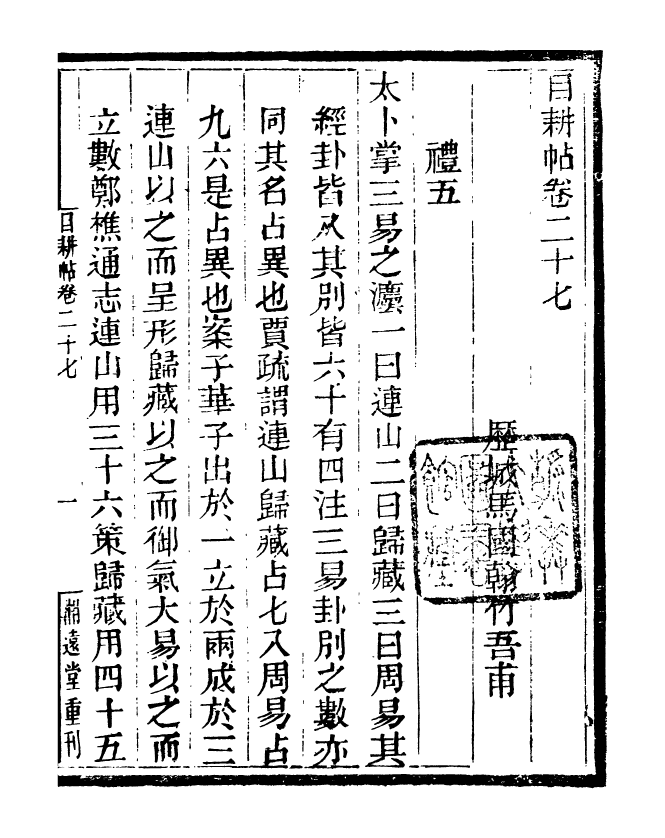 目耕帖卷二十七
歷城馬國翰竹吾甫
禮五
太卜掌三易之灋一曰連山二曰歸藏三曰周易其
經卦皆八其別皆六十有四注三易卦別之數亦
同其名占異也賈疏謂連山歸藏占七八周易占
九六是占異也案子華子出於一立於兩成於三
連山以之而呈形歸藏以之而御氣大易以之而
立數鄭樵通志連山用三十六策歸藏用四十五
目耕帖卷二十七
一
遠堂重刊